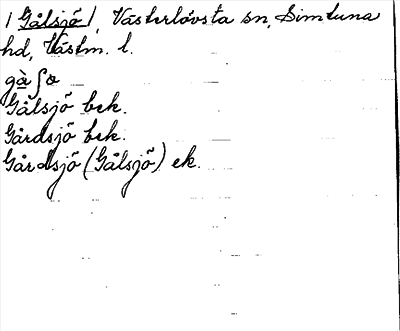 / Gålsjö /, Västerlövsta sn, Simtuna
hd, Västm. l.
gà ʃɵ
Gålsjö bek.
Gårdsjö bek.
Gårdsjö (Gålsjö) ek.